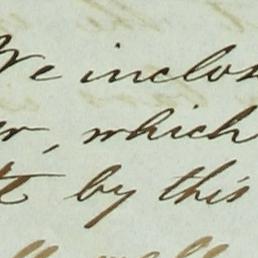 We inclos
, which
by this